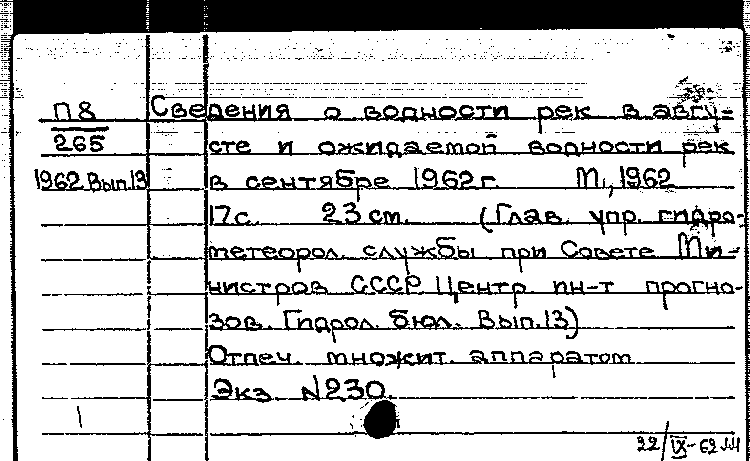 П8 Сведения о водности рек в авгу-
265 сте и ожидаемой водности рек
1962 Вып.13 в сентябре 1962 г. М., 1962
17 с. 23 см. (Глав. упр. гидро-
метеорол. службы при Совете Ми-
нистров СССР. Центр. ин-т прогно-
зов. Гидрол. бюл. Вып.13)
Отпеч. множит. аппаратом
Экз. №230.
22/IX-62